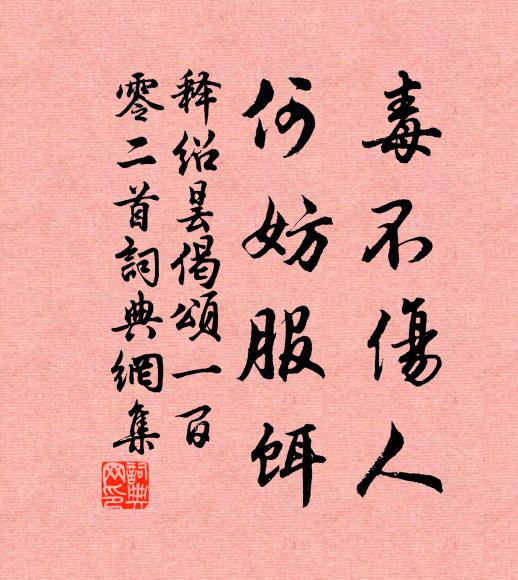 毒不傷人
何妨服餌
釋紹曇偈頌一百
零二首詞典網集
詞典網印